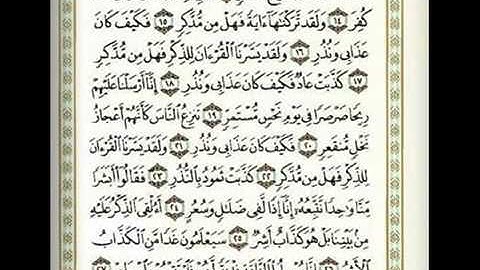 كُفِرَ ١٤ وَلَقَد تَّرَكْنَٰهَآ ءَايَةً فَهَلْ مِن مُّدَّكِرٍ ١٥ فَكَيْفَ كَانَ
عَذَابِى وَنُذُرِ ١٦ وَلَقَدْ يَسَّرْنَا ٱلْقُرْءَانَ لِلذِّكْرِ فَهَلْ مِن مُّدَّكِرٍ
١٧ كَذَّبَتْ عَادٌ فَكَيْفَ كَانَ عَذَابِى وَنُذُرِ ١٨ إِنَّآ أَرْسَلْنَا عَلَيْهِمْ
رِيحًا صَرْصَرًا فِى يَوْمِ نَحْسٍ مُّسْتَمِرٍّ ١٩ تَنزِعُ ٱلنَّاسَ كَأَنَّهُمْ أَعْجَازُ
نَخْلٍ مُّنقَعِرٍ ٢٠ فَكَيْفَ كَانَ عَذَابِى وَنُذُرِ ٢١ وَلَقَدْ يَسَّرْنَا ٱلْقُرْءَانَ
لِلذِّكْرِ فَهَلْ مِن مُّدَّكِرٍ ٢٢ كَذَّبَتْ ثَمُودُ بِٱلنُّذُرِ ٢٣ فَقَالُوٓا۟ أَبَشَرًا
مِّنَّا وَٰحِدًا نَّتَّبِعُهُۥٓ إِنَّآ إِذًا لَّفِى ضَلَٰلٍ وَسُعُرٍ ٢٤ أَءُلْقِىَ ٱلذِّكْرُ عَلَيْهِ
مِنۢ بَيْنِنَا بَلْ هُوَ كَذَّابٌ أَشِرٌ ٢٥ سَيَعْلَمُونَ غَدًا مَّنِ ٱلْكَذَّابُ